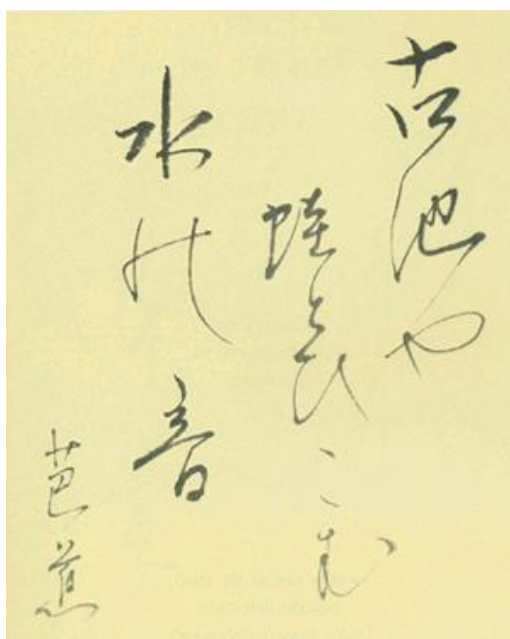 古池や
蛙とひこむ
水の音
芭蕉